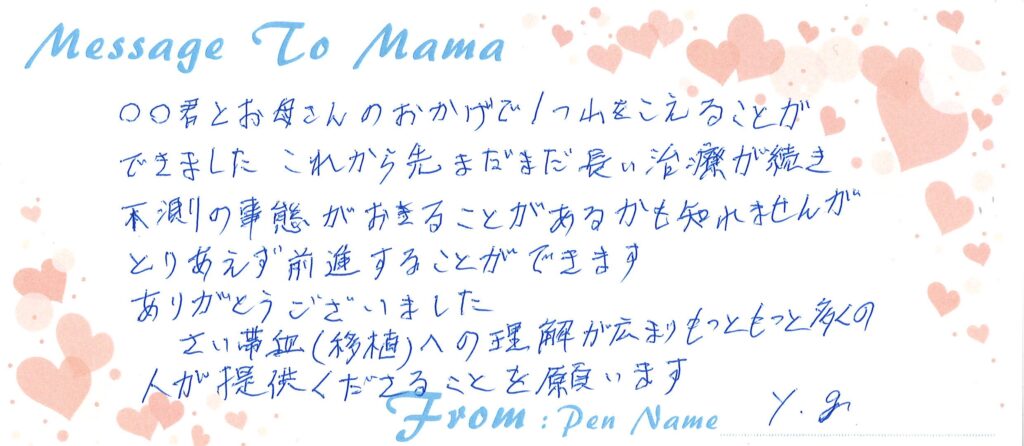 Message To Mama
〇〇君とお母さんのおかげで1つ山をこえることが
できました これから先まだまだ長い治療が続き
不測りの事態がおきることがあるかも知れませんが
とりあえず前進することができます
ありがとうございました
さい帯血(移植)への理解が広まりもっともっと多くの
人が提供くださることを願います
From : Pen Name Y.